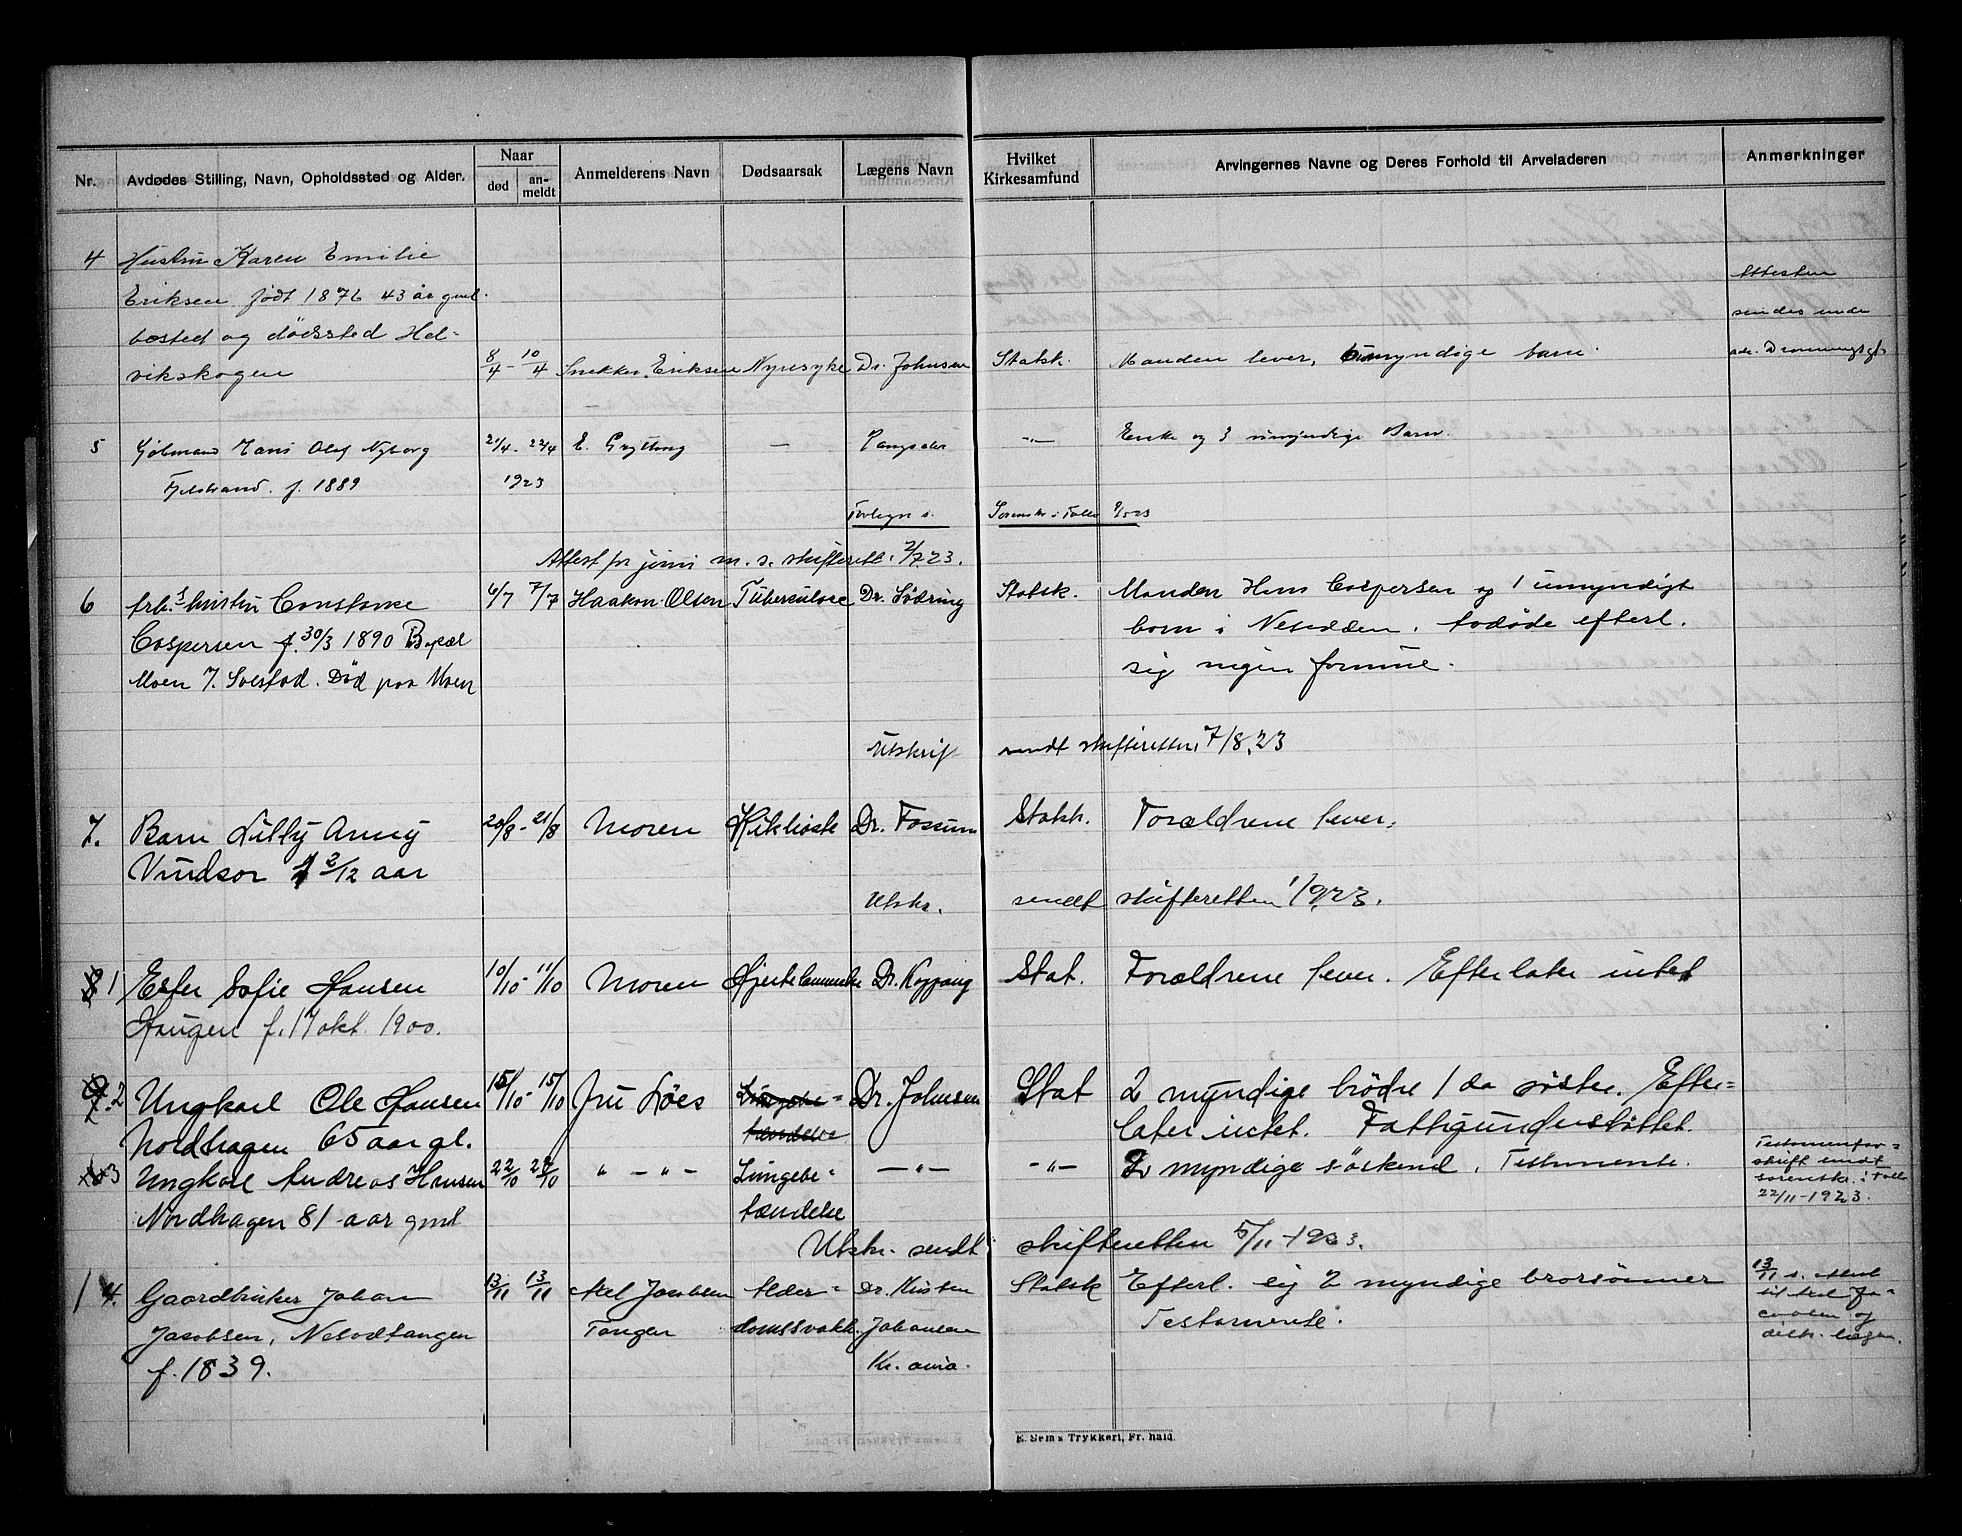 Nr. Avdødes Stilling, Navn, Opholdssted og Alder. Naar død an-meldt Anmelderens Navn Dødsaarsak Lægens Navn Hvilket Kirkesamfund Arvingernes Navne og Deres Forhold til Arveladeren Anmerkninger
4 Hustru Karen Emilie
Attesten
Eriksen født 1876 43 år gml.
sendes under
bosted og dödssted Hel-
vikskogen 8/4 - 10/4 Snekker Eriksen Nyresyke Dr. Johnsen Statsk. Manden lever, umyndige barn.
5 Hans Olaf Nyborg 21/4 - 22/4 E. Grytting — Langsæter -"- Enke og 3 umyndige Barn.
Fjelstrand. f. 1889 1923
Sorenskr. i Follo
Attest fra m. s. skifterett. 2/7 23.
6 arb.s hustru Constanse 6/7 7/7 Haakon Olsen Tuberculose Dr. Södring Statsk. Manden Hans Caspersen og 1 umyndigt
Caspersen f. 30/3 1890 Bopæl barn i Nesodden. Avdøde efterl.
Moen p. Solstad. Död paa Moen sig ingen formue.
Utskrift sendt skifteretten 7/8.23
7. Barn Lilly Anny 20/8 - 21/8 Moren Kikhoste Dr. Fossum Statsk. Forældrene lever.
Vindsor 3/12 aar
Utskr. sendt skifteretten 1/9.23.
1 Ester Sofie Hansen 10/10 - 11/10 Moren Dr. Koppang Stat. Forældrene lever. Efterlater intet
Haugen f. 17 okt. 1900.
2 Ungkarl Ole Hansen 15/10 - 15/10 Fru Löes Lungebe= Dr. Johnsen Stat 2 myndige brödre 1 do søster. Efter=
Nordhagen 65 aar gl. tændelse later intet. Fattigunderstöttet.
3 Ungkarl Andreas Hansen 22/10 22/10 " - " - Lungebe= -"- -"- 2 myndige söskend. Testamente.
Testamentav=
skrift sendt
sorenskr. i Follo
22/11-1923.
Nordhagen 81 aar gml tændelse
Utskr. sendt skifteretten 5/11-1923.
4. Gaardbruker Johan 13/11 13/11 Axel Jacobsen Alder= Dr. Kristen Statsk Efterl. sig 2 myndige brorsönner
Jacobsen, Nesodtangen Tangen domssvakh. Johansen Testamente.
f. 1839. Kr.ania.
13/11 s. attest
til Axel Ja=
cobsen og
distr. lægen.
E. Sem's Trykkeri, Fr. hald.